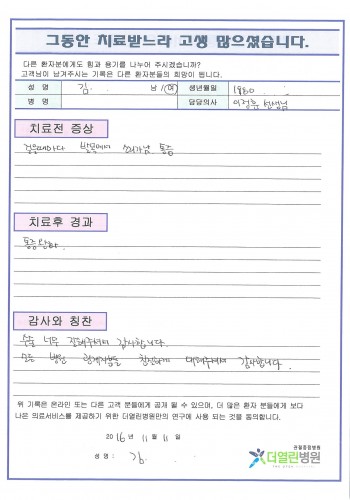 그동안 치료받느라 고생 많으셨습니다.
다른 환자분에게도 힘과 용기를 나누어 주시겠습니까?
고객님이 남겨주시는 기록은 다른 환자분들의 희망이 됩니다.
성 명 김 남 / 여 생년월일 1980. .
병 명 담당의사 이정훈 선생님
치료전 증상
걸을때마다 발목에서 소리가남. 통증
치료후 경과
통증완화.
감사와 칭찬
수술 너무 잘해주셔서 감사합니다.
모든 병원 관계자분들 친절하게 대해주셔서 감사합니다.
위 기록은 온라인 또는 다른 고객 분들에게 공개 될 수 있으며, 더 많은 환자 분들에게 보다
나은 의료서비스를 제공하기 위한 더열린병원만의 연구에 사용 되는 것을 동의합니다.
2016년 11월 11일
성 명 : 김.
관절중점병원
더열린병원